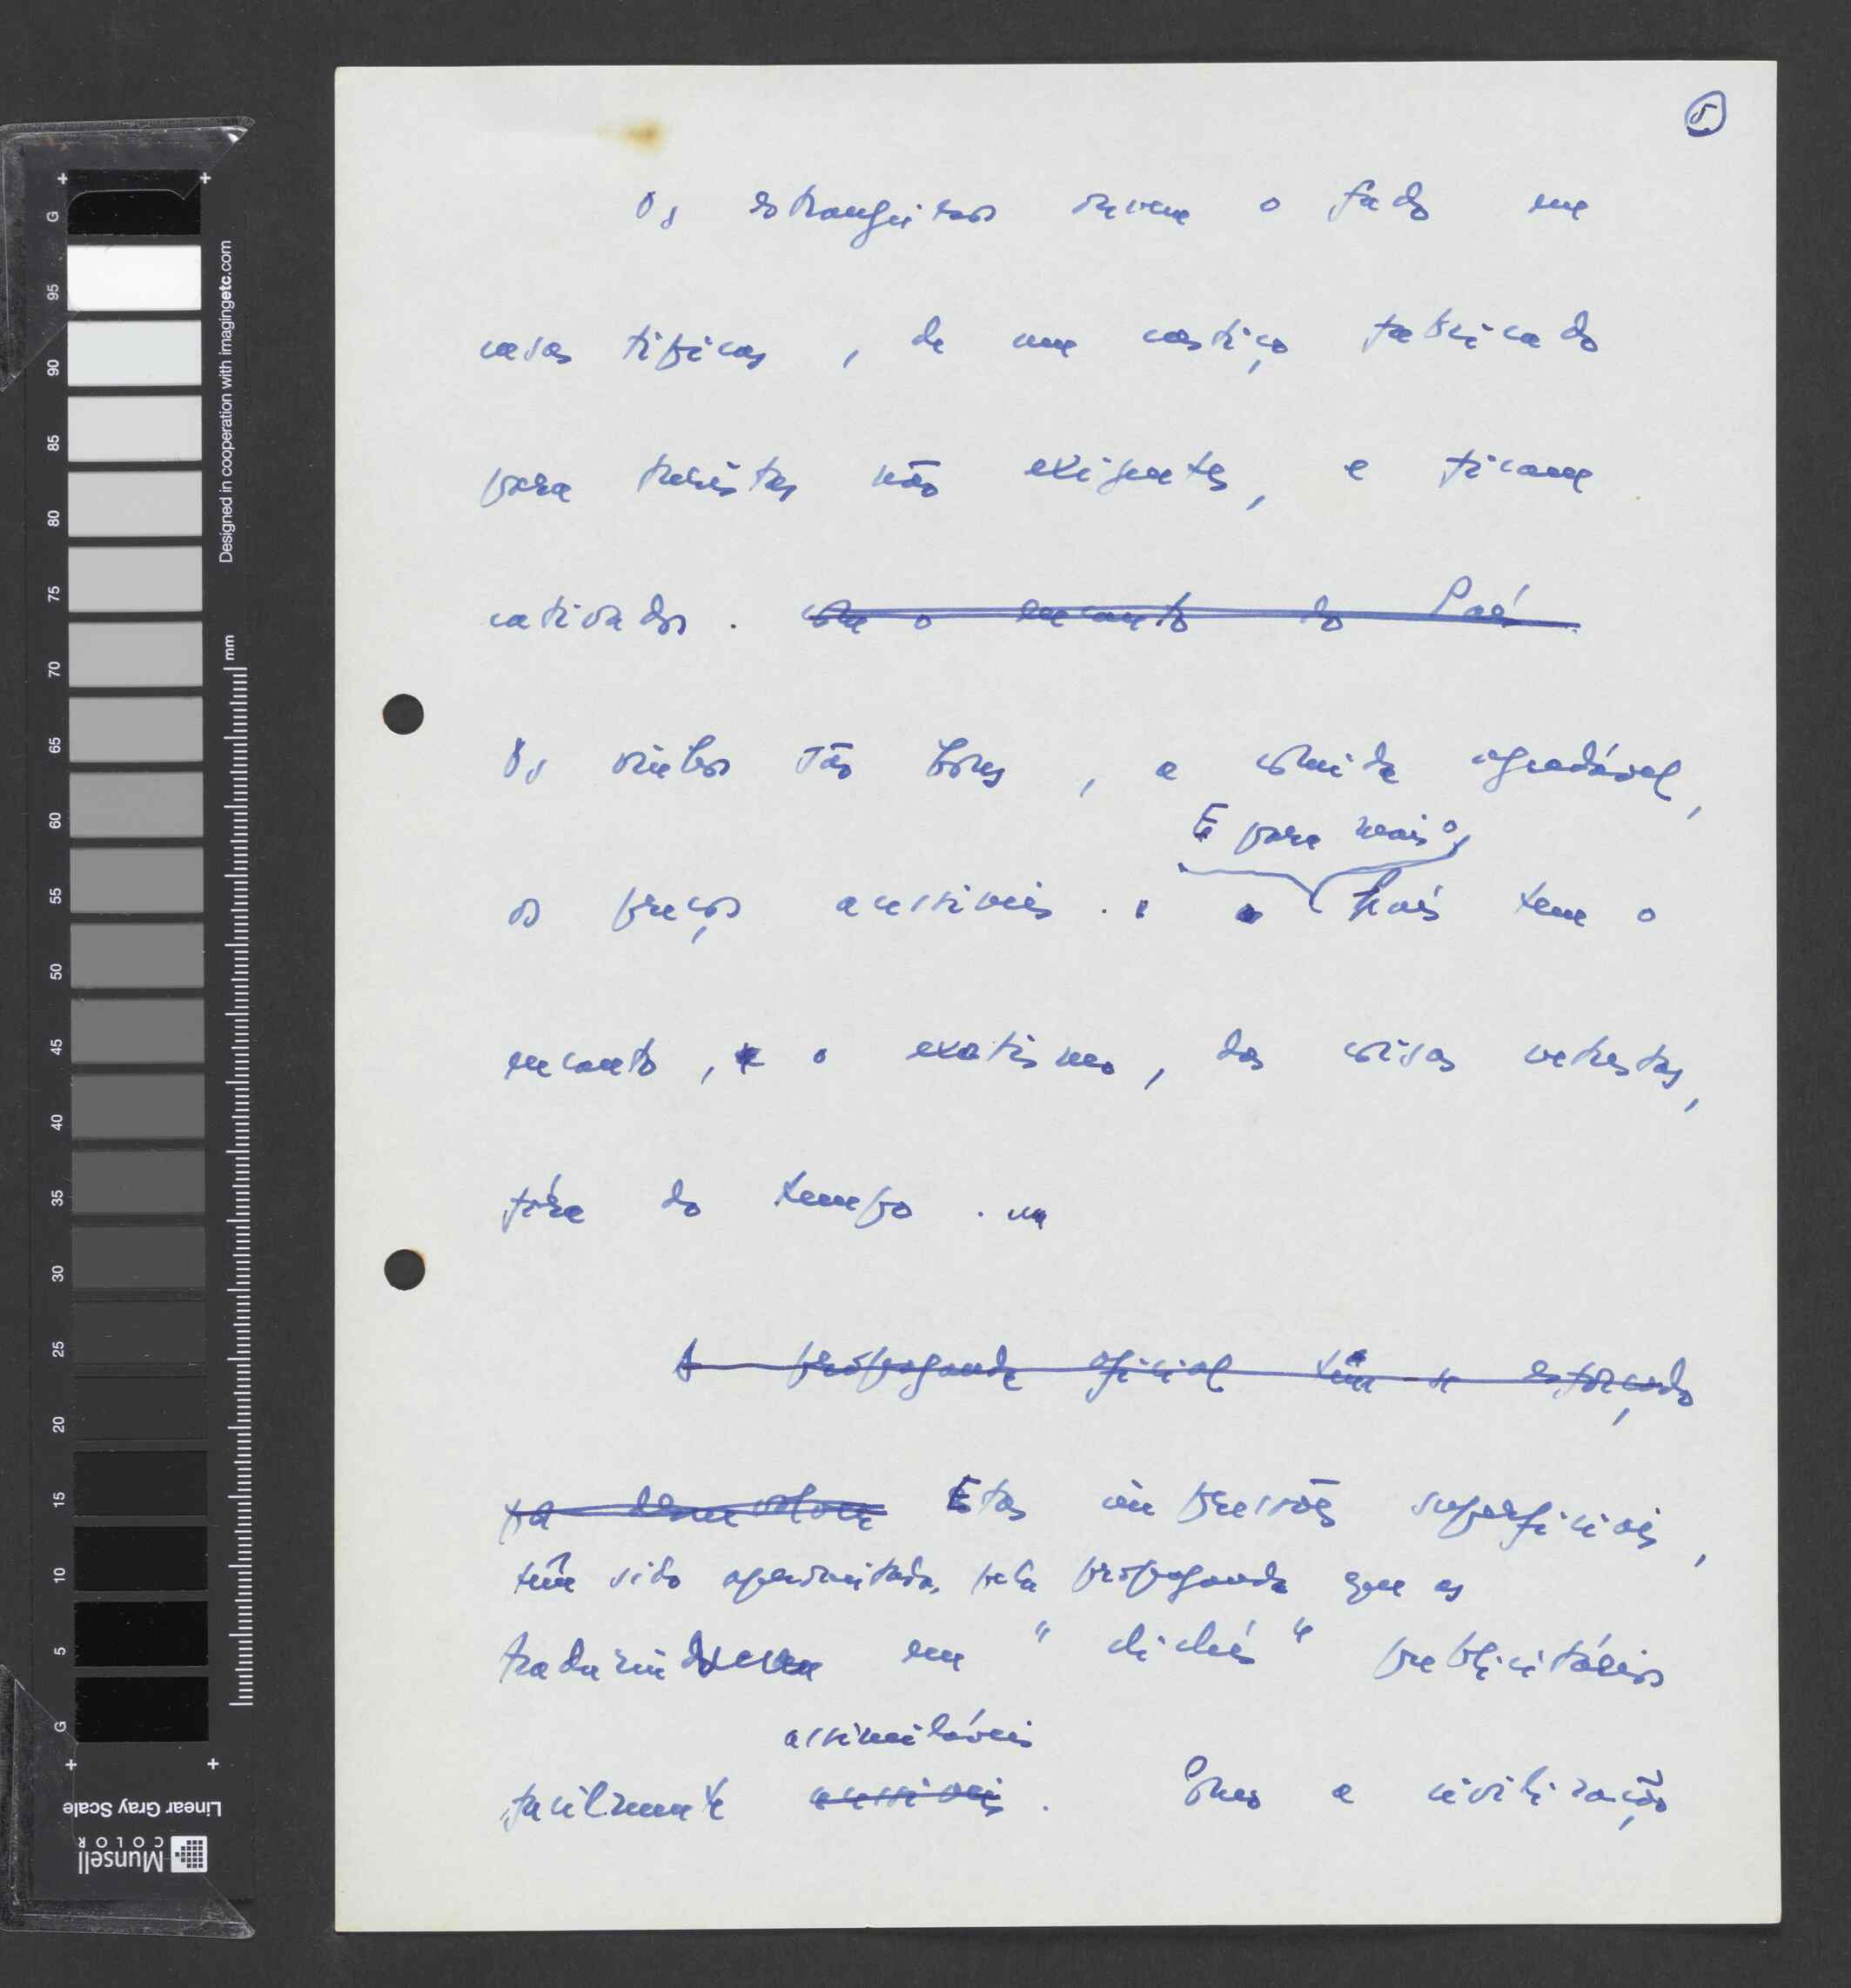 5
Os estrangeiros ouvem o fado em
casas típicas, de um castiço fabricado
para turistas não exigentes, e ficam
cativados. com o encanto do País
Os vinhos são bons, a comida agradável,
E para mais o
os preços acessíveis. País tem o
encanto, e o exotismo, das coisas vetustas,
fóra do tempo.
A propaganda oficial têm-se esforçado
Estas impressões superficiais,
têm sido aproveitadas pela propaganda que as
traduzem em "clichés" publicitários
assimiláveis
facilmente acessíveis. Como a civilização
Designed in cooperation with imagingetc.com
mm
G 95 90 85 80 75 70 65 60 55 50 45 40 35 30 25 20 15 10 5 G
Linear Gray Scale
Munsell
COLOR